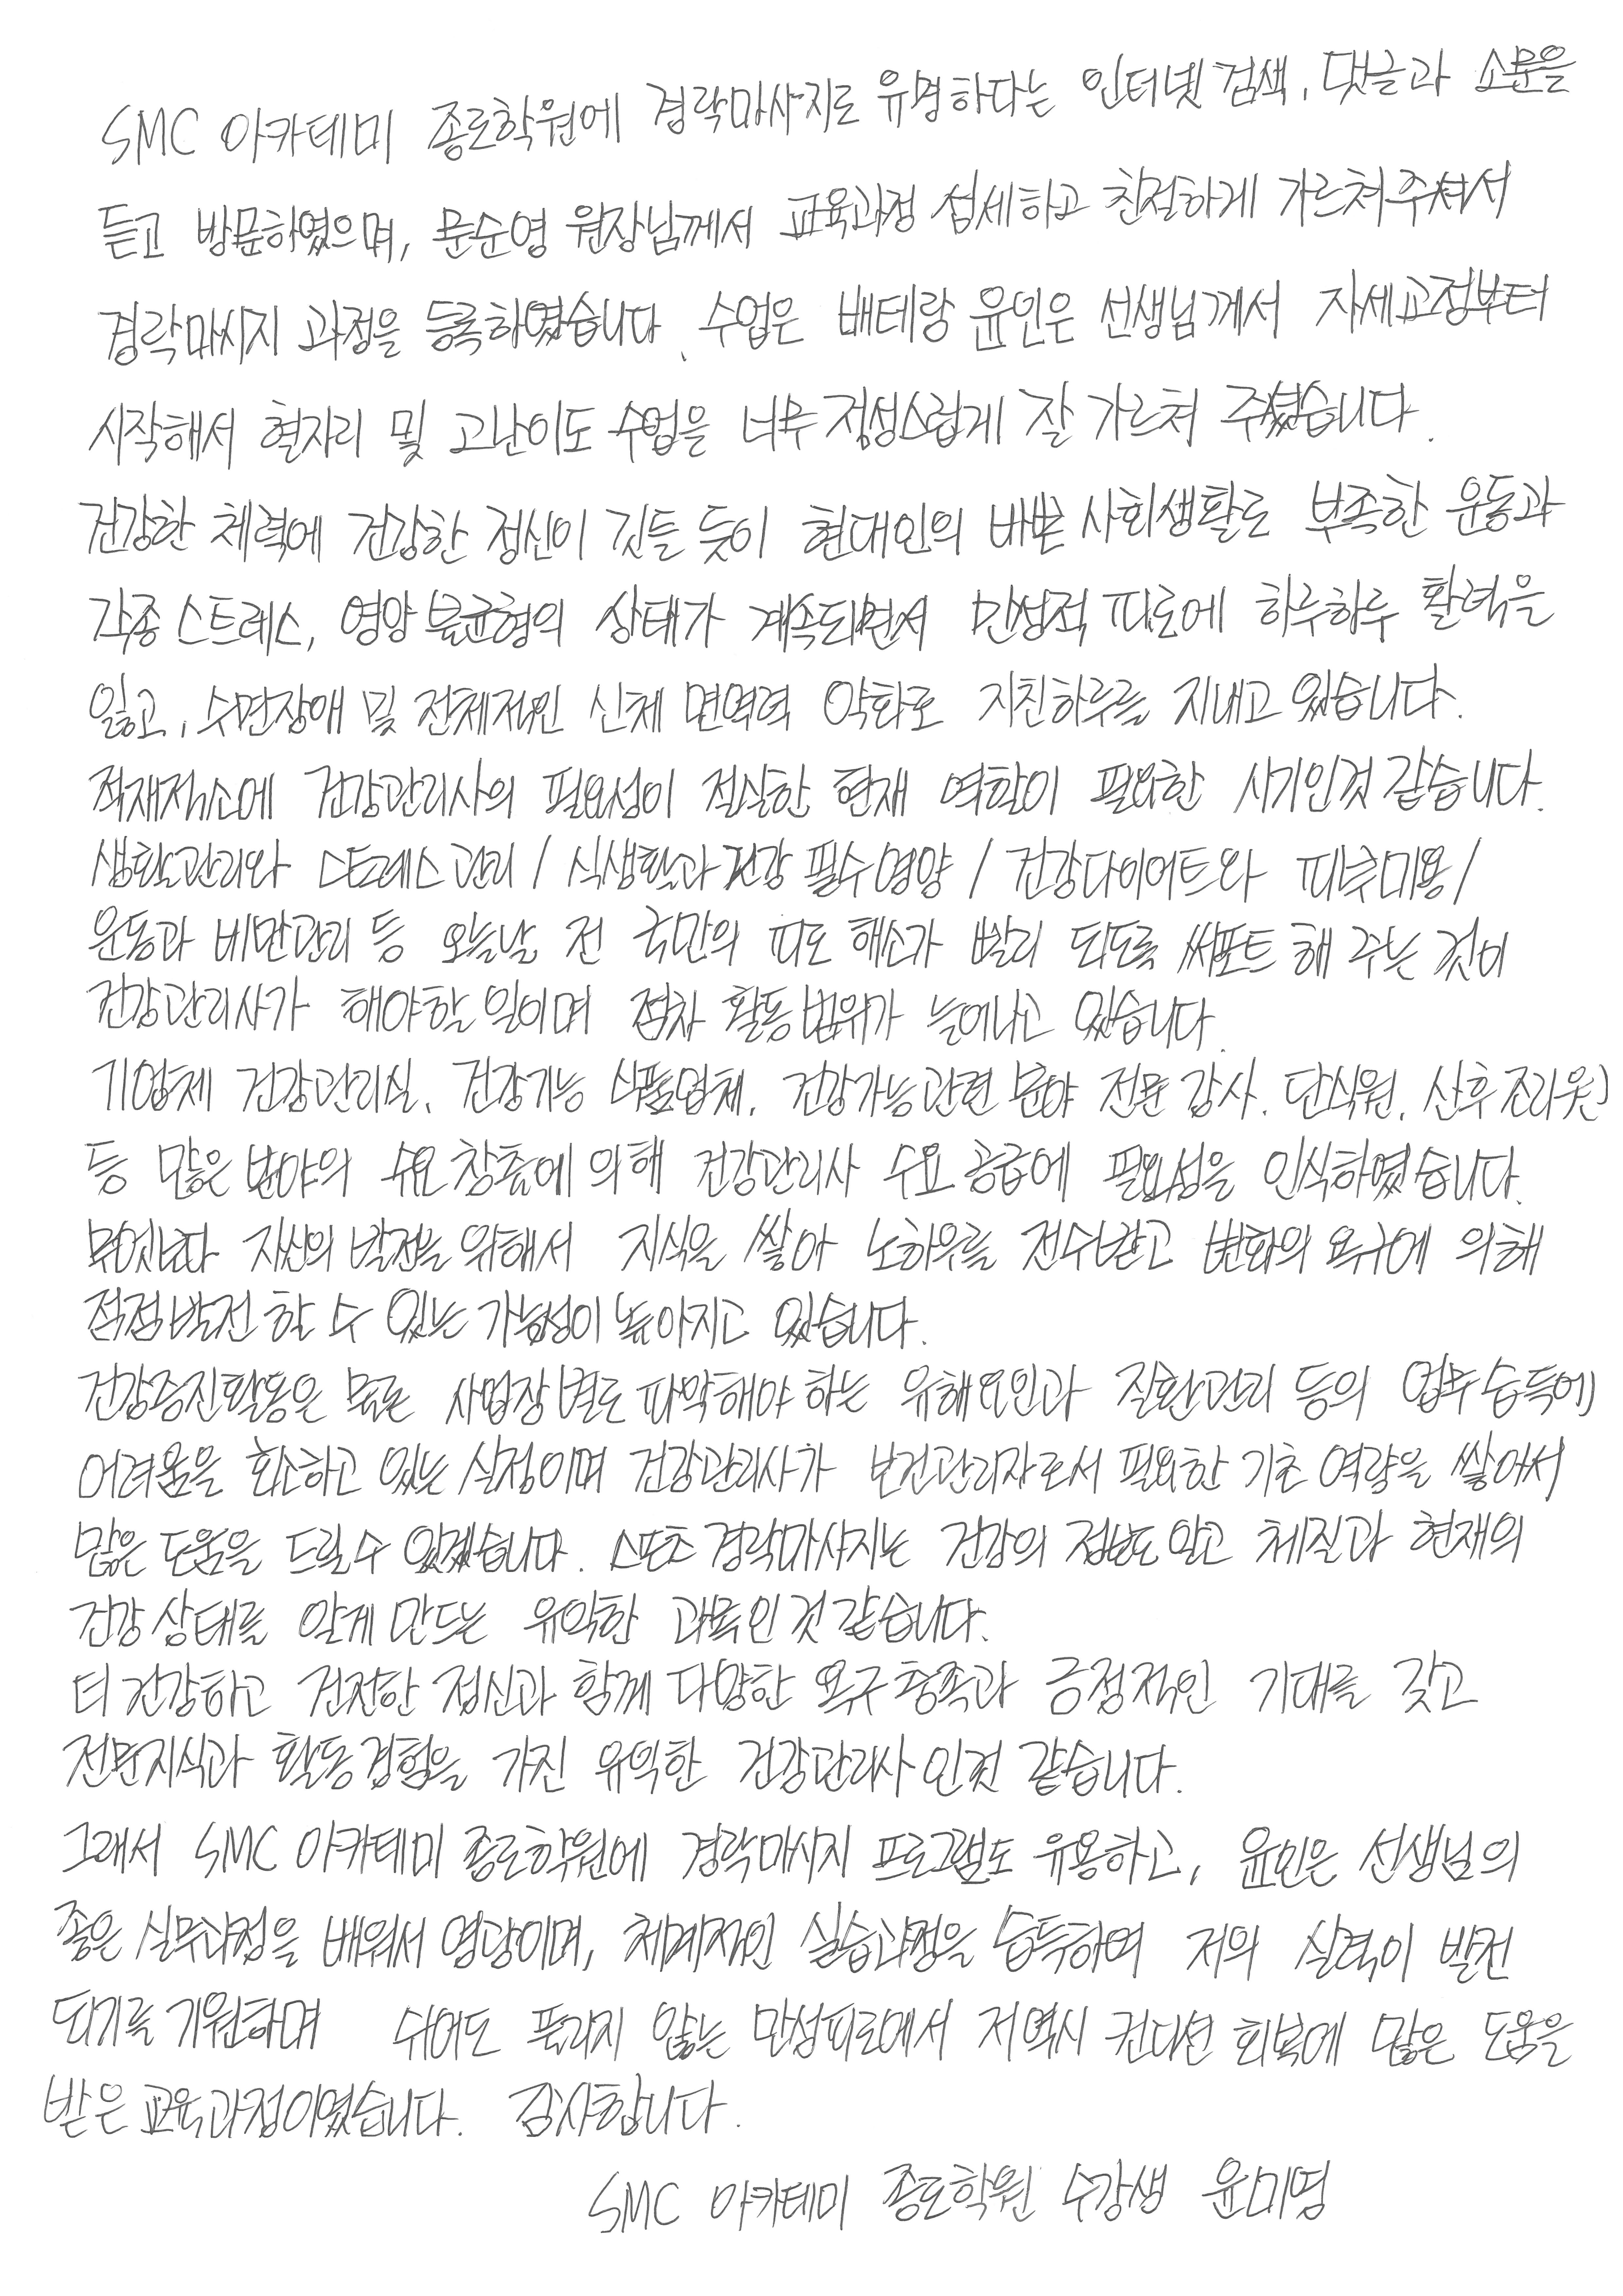 SMC 아카데미 종로학원에 경락마사지로 유명하다는 인터넷 검색, 댓글과 소문을
듣고 방문하였으며, 문순영 원장님께서 교육과정 섬세하고 친절하게 가르쳐주셔서
경락마사지 과정을 등록하였습니다. 수업은 배테랑 윤인은 선생님께서 자세교정부터
시작해서 혈자리 및 고난이도 수업을 너무 정성스럽게 잘 가르쳐 주셨습니다.
건강한 체력에 건강한 정신이 깃들 듯이 현대인의 바쁜 사회생활로 부족한 운동과
각종 스트레스, 영양 불균형의 상태가 계속되면서 만성적 피로에 하루하루 활력을
잃고, 수면장애 및 전체적인 신체 면역력 약화로 지친하루를 지내고 있습니다.
적재적소에 건강관리사의 필요성이 절실한 현재 역할이 필요한 시기인것 같습니다.
생활관리와 스트레스 관리 / 식생활과 건강 필수영양 / 건강다이어트와 피부미용 /
운동과 비만관리 등 오늘날 전 국민의 피로 해소가 빨리 되도록 써포트 해 주는 것이
건강관리사가 해야할 일이며 점차 활동범위가 늘어나고 있습니다.
기업체 건강관리실, 건강기능 식품업체, 건강기능관련 분야 전문 강사, 단식원, 산후조리원
등 많은 분야의 수요 창출에 의해 건강관리사 수요 공급에 필요성을 인식하였습니다.
무엇보다 자신의 발전을 위해서 지식을 쌓아 노하우를 전수받고 변화의 욕구에 의해
점점발전 할 수 있는 가능성이 높아지고 있습니다.
건강증진활동은 물론 사업장별로 파악해야 하는 유해요인과 질환관리 등의 업무습득에
어려움을 호소하고 있는 실정이며 건강관리사가 보건관리자로서 필요한 기초 역량을 쌓아서
많은 도움을 드릴수 있겠습니다. 스포츠 경락마사지는 건강의 정보도 알고 체질과 현재의
건강 상태를 알게 만드는 유익한 과목인 것 같습니다.
더 건강하고 건전한 정신과 함께 다양한 욕구 충족과 긍정적인 기대를 갖고
전문지식과 활동경험을 가진 유익한 건강관리사 인것 같습니다.
그래서 SMC 아카데미 종로학원에 경락마사지 프로그램도 유용하고, 윤인은 선생님의
좋은 실무과정을 배워서 영광이며, 체계적인 실습과정을 습득하여 저의 실력이 발전
되기를 기원하며 쉬어도 풀리지 않는 만성피로에서 저역시 컨디션 회복에 많은 도움을
받은 교육과정이였습니다. 감사합니다.
SMC 아카데미 종로학원 수강생 윤미영